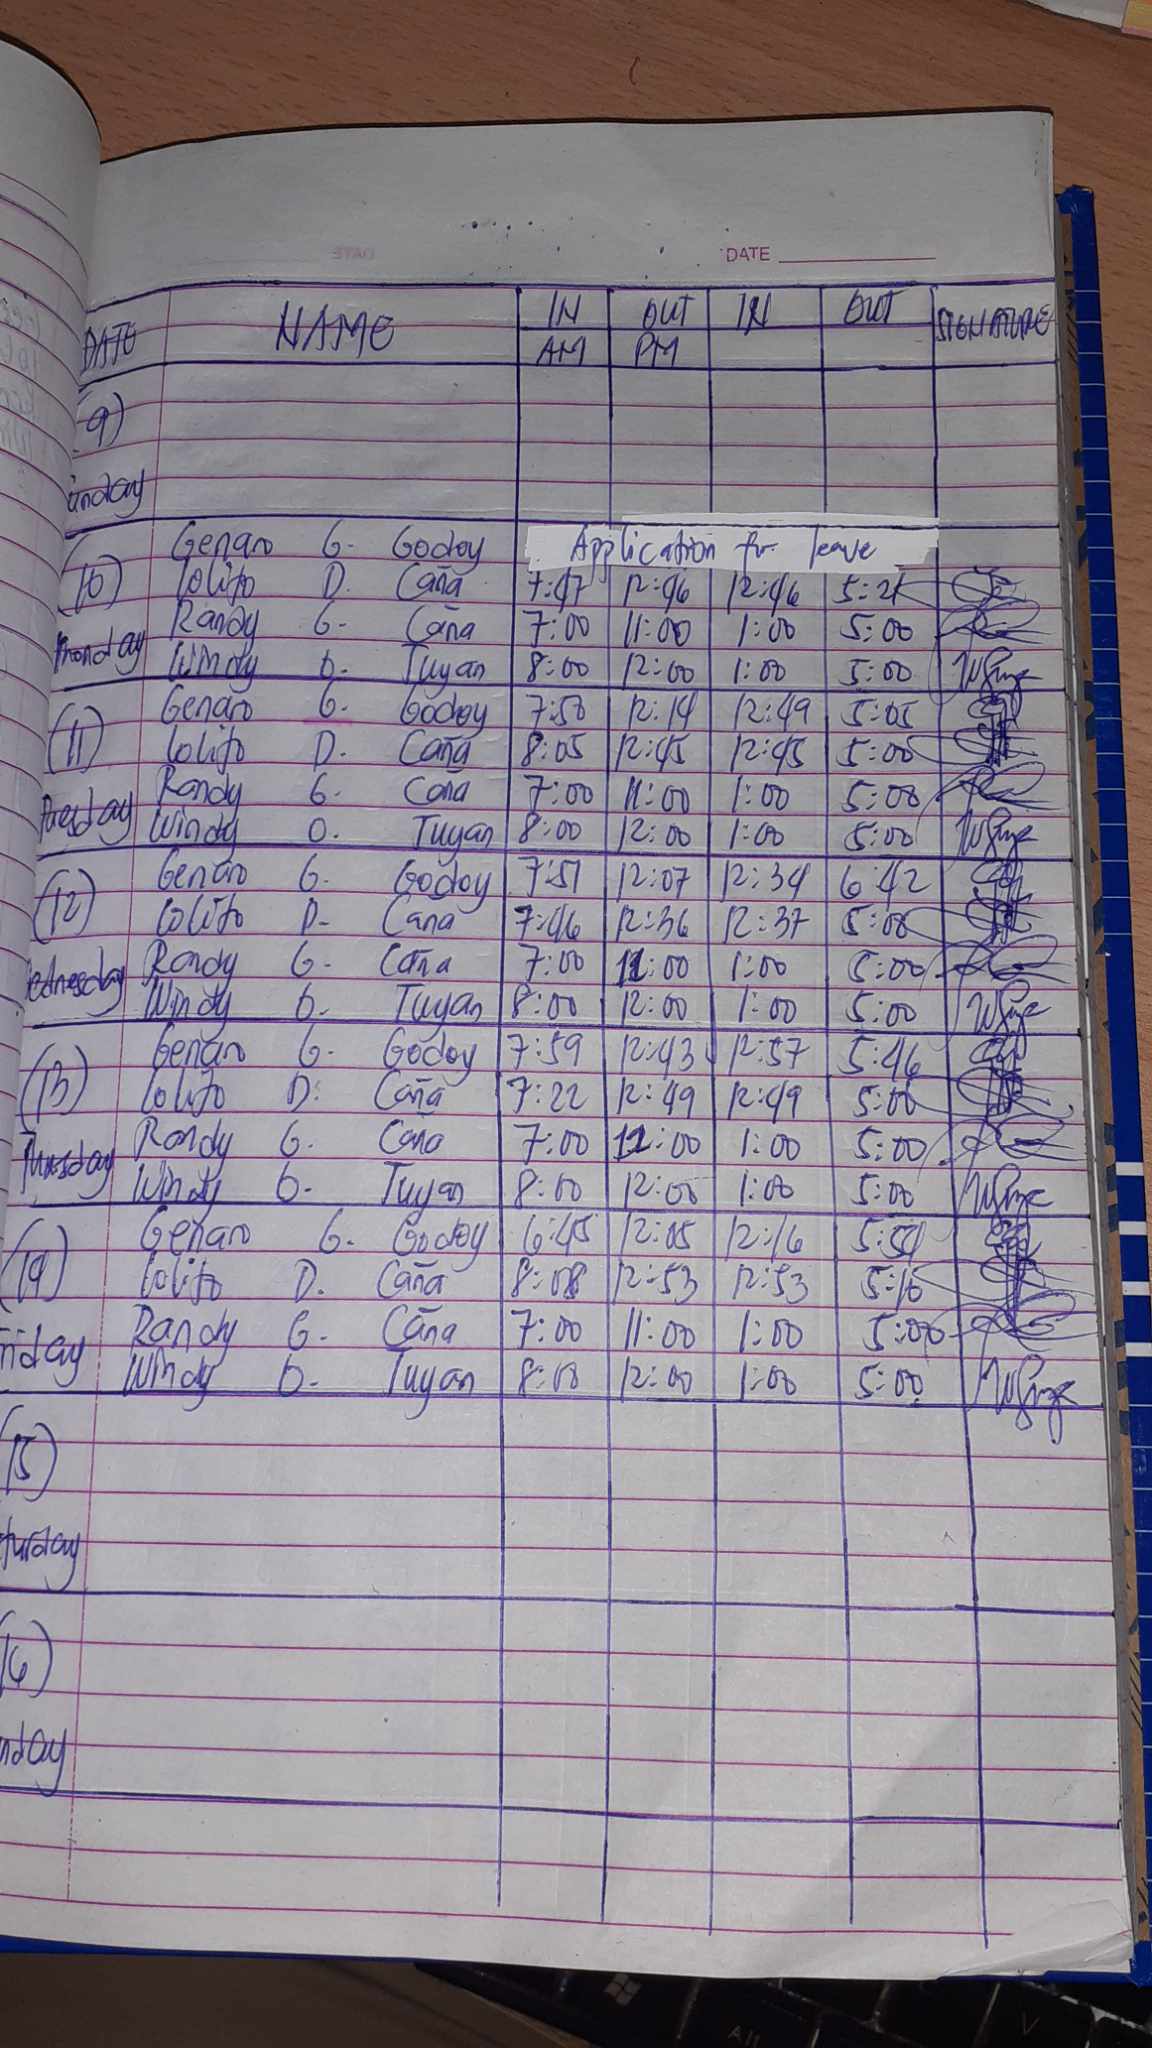 DATE
DATE NAME IN OUT IN OUT SIGNATURE
AM PM
9)
unday
Genaro G. Godoy Application for leave
(10) Lolito D. Caña 7:47 12:46 12:46 5:21
Randy G. Caña 7:00 11:00 1:00 5:00
Monday Windy O. Tuyan 8:00 12:00 1:00 5:00
Genaro G. Godoy 7:50 12:14 12:49 5:05
(11) Lolito D. Caña 8:05 12:45 12:45 5:00
Randy G. Caña 7:00 11:00 1:00 5:00
Tuesday Windy O. Tuyan 8:00 12:00 1:00 5:00
Genaro G. Godoy 7:51 12:07 12:34 6:42
(12) Lolito D. Caña 7:46 12:36 12:37 5:00
ednesday Randy G. Caña 7:00 11:00 1:00 5:00
Windy O. Tuyan 8:00 12:00 1:00 5:00
Genaro G. Godoy 7:59 12:43 12:57 5:46
(13) Lolito D. Caña 7:22 12:49 12:49 5:00
Thursday Randy G. Caña 7:00 11:00 1:00 5:00
Windy O. Tuyan 8:00 12:00 1:00 5:00
Genaro G. Godoy 6:45 12:05 12:16 5:54
(14) Lolito D. Caña 8:08 12:53 12:53 5:16
riday Randy G. Caña 7:00 11:00 1:00 5:00
Windy O. Tuyan 8:00 12:00 1:00 5:00
(15)
turday
16)
nday
Alt
V